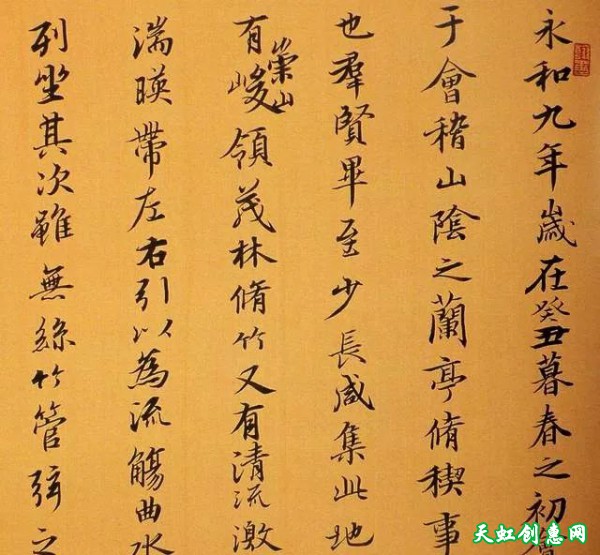 永和九年歲在癸丑暮春之初
于會稽山陰之蘭亭脩稧事
也羣賢畢至少長咸集此地
有崇山峻領茂林脩竹又有清流激
湍暎帶左右引以為流觴曲水
列坐其次雖無絲竹管弦之
天虹创惠网